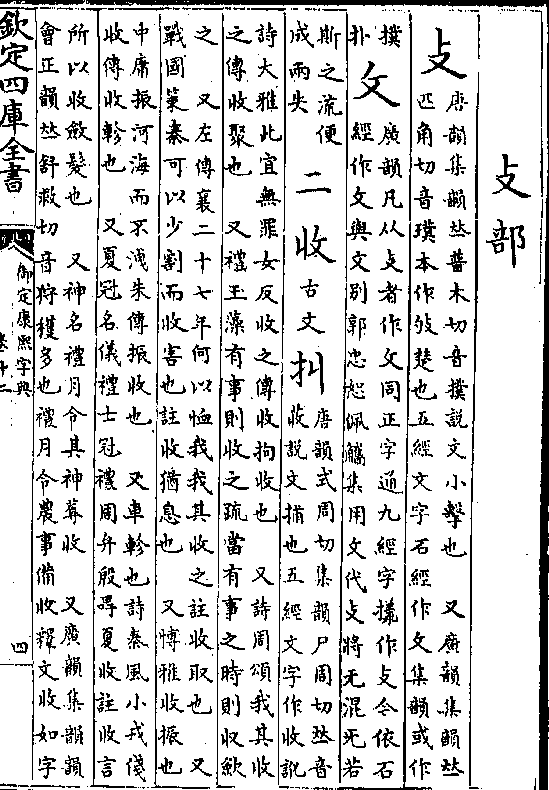 攴部
攴
唐韻集韻𠀤普木切音撲說文小擊也 又廣韻集韻𠀤
匹角切音璞本作攷楚也五經文字石經作攵集韻或作
撲
扑
攵
廣韻凡从攴者作攵同正字通九經字㨾作攴今依石
經作攵與文别郭忠恕佩觿集用文代攴將无混旡若
斯之流便
成兩失
二 收 古文 𠬧
唐韻式周切集韻尸周切𠀤音
收說文捕也五經文字作收訛
詩大雅此宜無罪女反收之傳收拘收也 又詩周頌我其收
之傳收聚也 又禮玉藻有事則收之疏當有事之時則収歛
之 又左傳襄二十七年何以恤我我其收之註收取也 又
戰國策秦可以少割而收害也註收猶息也 又博雅收振也
中庸振河海而不洩朱傳振收也 又車軫也詩秦風小戎俴
收傳收軫也 又夏冠名儀禮士冠禮周弁殷冔夏收註收言
所以收斂髮也 又神名禮月令其神蓐收 又廣韻集韻韻
會正韻𠀤舒救切音狩穫多也禮月令農事備收釋文收如字
欽定四庫全書
御定康熙字典
卷十二
四